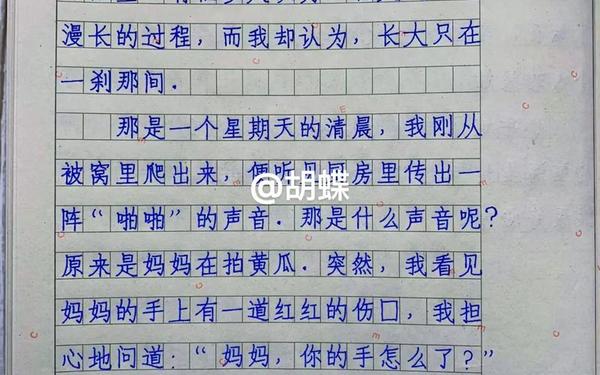 漫长的过程，而我却认为，长大只在
一刹那间．
那是一个星期天的清晨，我刚从
被窝里爬出来，便听见厨房里传出一
阵“啪啪”的声音．那是什么声音呢？
原来是妈妈在拍黄瓜．突然，我看见
妈妈的手上有一道红红的伤口，我担
心地问道：“妈妈，你的手怎么了？”
@胡蝶